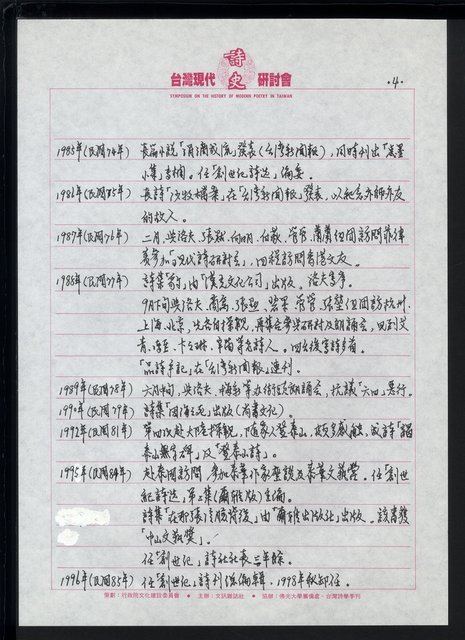 台灣現代詩史研討會
SYMPOSIUM ON THE HISTORY OF MODERN POETRY IN TAIWAN
·4·
1985年(民國74年) 長篇小說「涓滴成流」發表(台灣新聞報),同時刊出「
小集」專欄。任「創世紀詩選」編委。
1986年(民國75年) 長詩 在「台灣新聞報」發表,以紀念
的故人。
1987年(民國76年) 二月,與洛夫、張默、向明、白萩、管管、蕭蕭組團訪問菲律
賓參加「現代詩研討會」,回程訪問香港文友。
1988年(民國77年) 詩集 由「漢光文化公司」出版。洛夫為序。
9月下旬與洛夫、 張默、碧果、管管、張堃組團訪杭州、
上海、北京,先各自探親,再集合參與研討及朗誦會,見到艾
青、 卞之琳、辛笛等老詩人。回台後寫詩多首。
「品詩手記」在「台灣新聞報」連刊。
1989年(民國78年) 六月中旬,與洛夫、梅新等辦街頭朗誦會,抗議「六四」暴行。
1990年(民國79年) 詩集 出版(尚書文化)。
1992年(民國81年) 第四次赴大陸探親,隨家人登泰山,頗多感觸,成詩
泰山無字碑」及「登泰山詩」。
1995年(民國84年) 赴泰國訪問,參加泰華作家座談及泰華文藝營。任「創世
紀詩選」第二集(爾雅版)主編。
詩集「在那張冷臉背後」由「爾雅出版社」出版。該書獲
「中山文藝獎」。
任「創世紀」詩社社長三年餘。
1996年(民國85年) 任「創世紀」詩刊總編輯,1998年秋卸任。
策劃:行政院文化建設委員會 ● 主辦:文訊雜誌社 ● 協辦:佛光大學籌備處、台灣詩學季刊